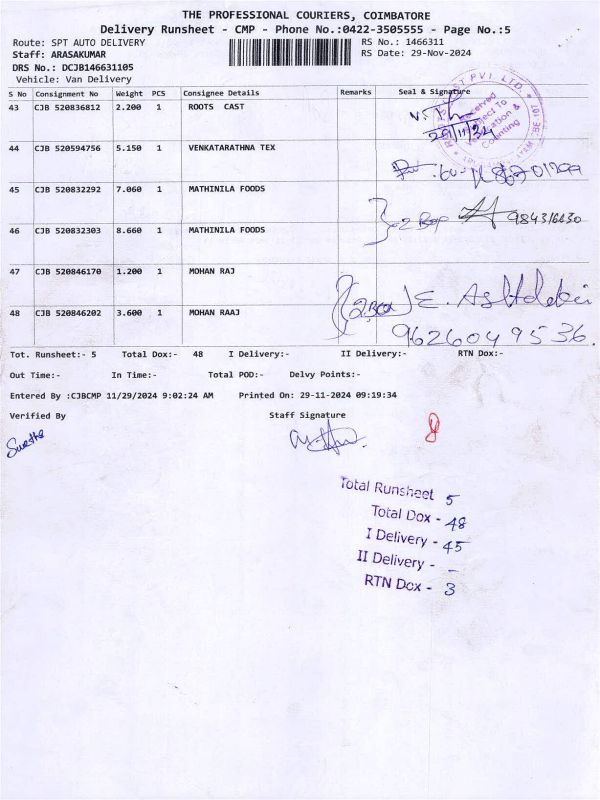 THE PROFESSIONAL COURIERS, COIMBATORE
Delivery Runsheet - CMP - Phone No.:0422-3505555 - Page No.:5
Route: SPT AUTO DELIVERY
RS No.: 1466311
Staff: ARASAKUMAR
RS Date: 29-Nov-2024
DRS No.: DCJB146631105
Vehicle: Van Delivery
S No Consignment No Weight PCS Consignee Details Remarks Seal & Signature
43 CJB 520836812 2.200 1 ROOTS CAST
29/11/24
Received
Subject To
Verification &
Counting
44 CJB 520594756 5.150 1 VENKATARATHNA TEX
45 CJB 520832292 7.060 1 MATHINILA FOODS
2 Box 984316630
46 CJB 520832303 8.660 1 MATHINILA FOODS
47 CJB 520846170 1.200 1 MOHAN RAJ
(2 Box)
48 CJB 520846202 3.600 1 MOHAN RAAJ
9626049536.
Tot. Runsheet:- 5 Total Dox:- 48 I Delivery:- II Delivery:- RTN Dox:-
Out Time:- In Time:- Total POD:- Delvy Points:-
Entered By :CJBCMP 11/29/2024 9:02:24 AM Printed On: 29-11-2024 09:19:34
Verified By Staff Signature
Total Runsheet 5
Total Dox - 48
I Delivery - 45
II Delivery - -
RTN Dox - 3